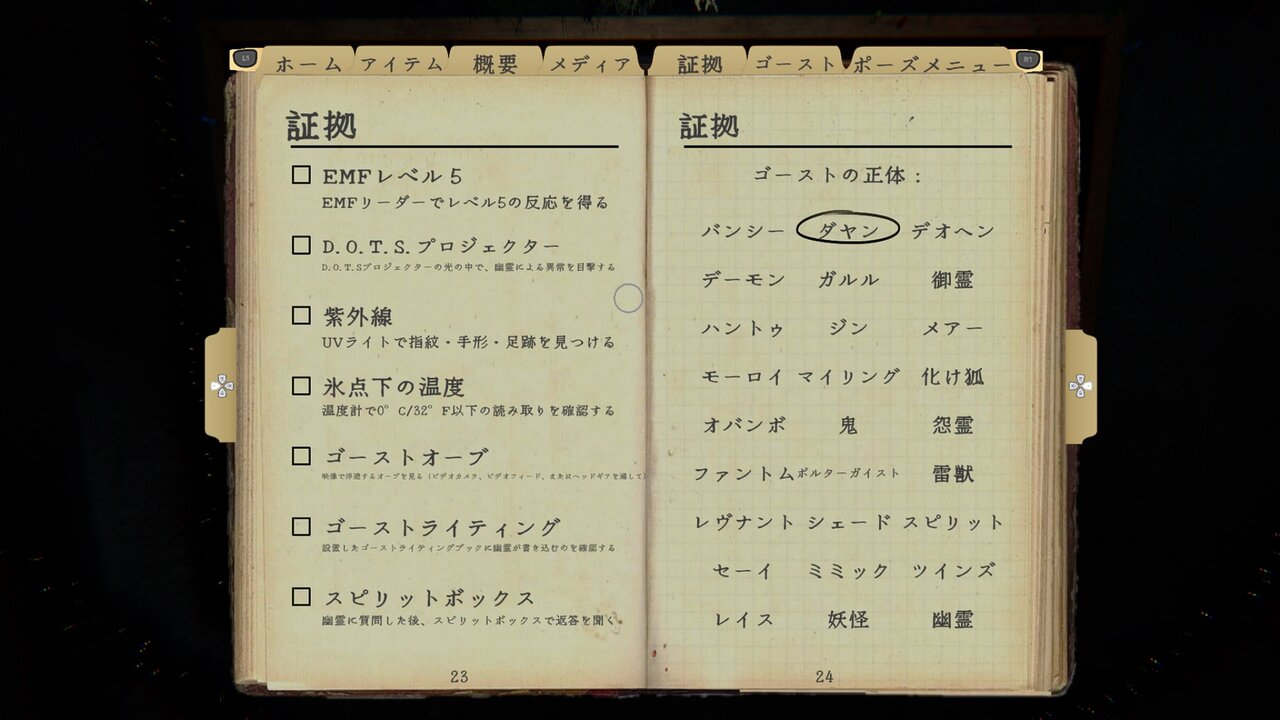 L1 ホーム アイテム 概要 メディア 証拠 ゴースト ポーズメニュー R1
証拠
EMFレベル５
EMFリーダーでレベル5の反応を得る
D.O.T.S.プロジェクター
D.O.T.Sプロジェクターの光の中で、幽霊による異常を目撃する
紫外線
UVライトで指紋・手形・足跡を見つける
氷点下の温度
温度計で0°C/32°F以下の読み取りを確認する
ゴーストオーブ
映像で浮遊するオーブを見る（ビデオカメラ、ビデオフィード、またはヘッドギアを通して）
ゴーストライティング
設置したゴーストライティングブックに幽霊が書き込むのを確認する
スピリットボックス
幽霊に質問した後、スピリットボックスで返答を聞く
23
証拠
ゴーストの正体：
バンシー ダヤン デオヘン
デーモン ガルル 御霊
ハントゥ ジン メアー
モーロイ マイリング 化け狐
オバンボ 鬼 怨霊
ファントム ポルターガイスト 雷獣
レヴナント シェード スピリット
セーイ ミミック ツインズ
レイス 妖怪 幽霊
24